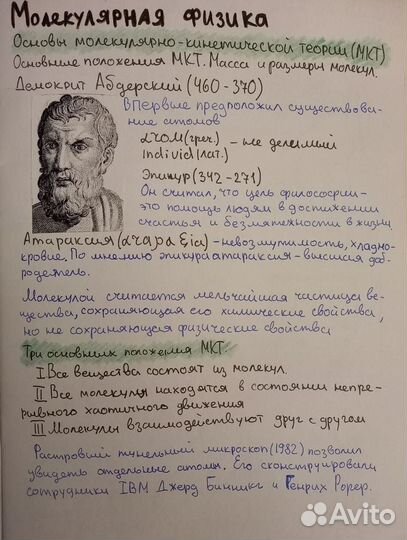 Молекулярная физика
Основы молекулярно-кинетической теории (МКТ)
Основные положения МКТ. Масса и размеры молекул.
Демокрит Абдерский (460-370)
Впервые предположил существова-
ние атомов
(греч.) - не делимий
individ (лат.)
Эпикур (342-271)
Он считал, что цель философии-
это помощь людям в достижении
счастья и безмятежности в жизни
Атараксия ( ) - невозмутимость, хладно-
кровие. По мнению эпикура атараксия - высшая доб-
родетель.
Молекулой считается мельчайшая частица ве-
щества, сохраняющая его химические свойства,
но не сохраняющая физические свойства
Три основных положения МКТ.
I Все вещества состоят из молекул.
II Все молекулы находятся в состоянии непре-
рывного хаотичного движения
III Молекулы взаимодействуют друг с другом
Растровый тунельный микроскоп (1982) позволил
увидеть отдельные атомы. Его сконструировали
сотрудники IBM Джерд Биннинг и Генрих Рорер.
Avito